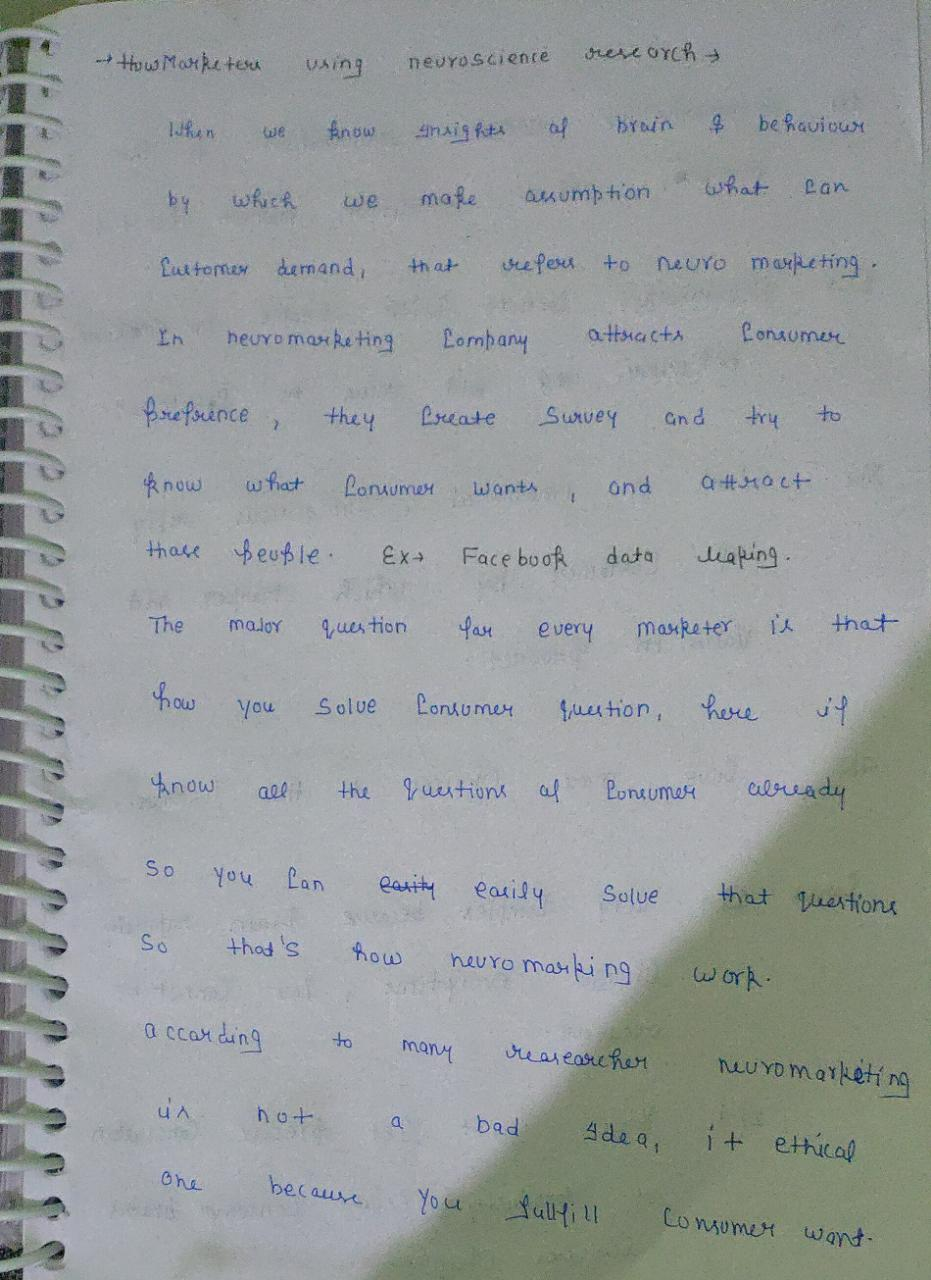 → How Marketers using neuroscience research →
When we know insights of brain & behaviour
by which we make assumption what can
Customer demand, that refers to neuro marketing.
In neuromarketing Company attracts Consumer
Prefrence, they Create Survey and try to
know what Consumer wants, and attract
those peuple. Ex→ Facebook data leaking.
The major question for every marketer is that
how you solve Consumer question, here if
know all the questions of Consumer already
So you Can easily easily Solve that questions
So that's how neuromarking work.
according to many reasearcher neuromarketing
is not a bad Idea, it ethical
One because You fullfill Consumer want.